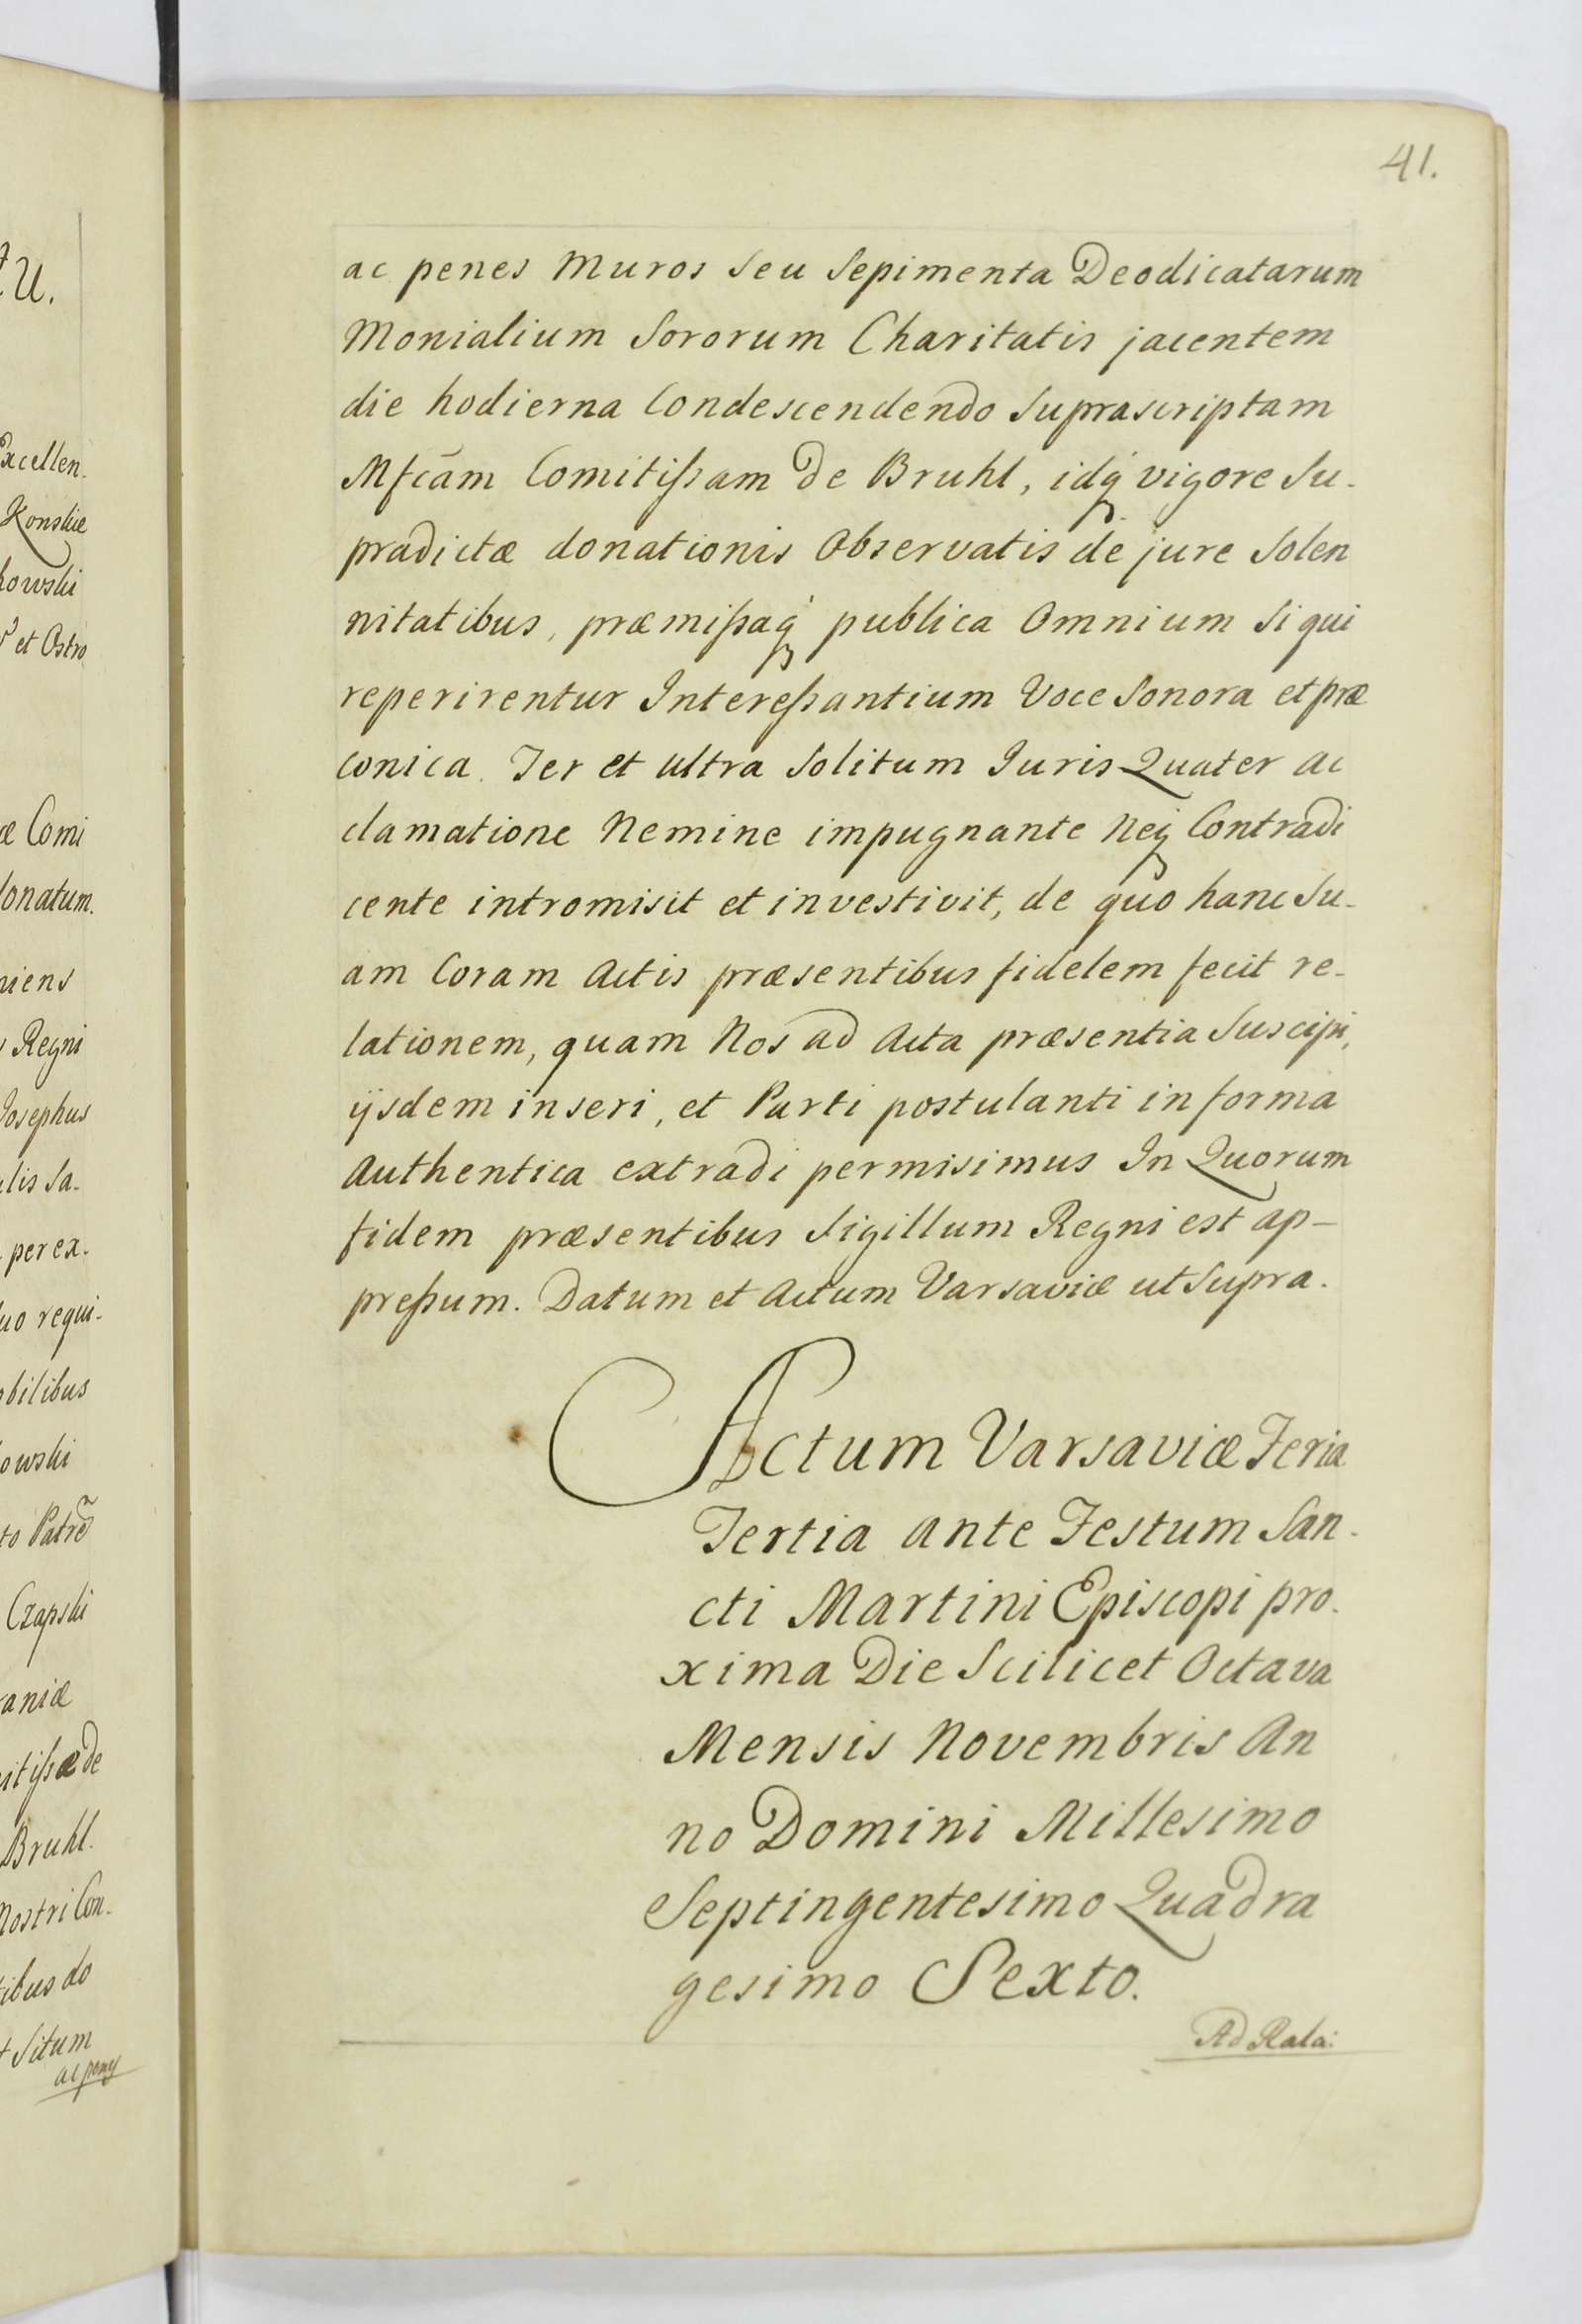 41.
ac penes Muros Seu Sepimenta Deodicatarum
Monialium Sororum Charitatis jacentem
die hodierna Condescendendo Suprascriptam
Mfcãm Comitißam De Bruhl, idq́ vigore Su-
pradictæ donationis Observatis de jure Solen
nitatibus, præmißaq́ publica Omnium Si qui
reperirentur Intereßantium Voce Sonora et præ
conica Ter et ultra Solitum Juris Quater ac
clamatione Nemine impugnante Neq́ Contradi
cente intromisit et investivit, de quo hanc Su-
am Coram Actis præsentibus fidelem fecit re-
lationem, quam Nos ad Acta præsentia Suscipi,
ijsdem inseri, et Parti postulanti in forma
Authentica extradi permisimus In Quorum
fidem præsentibus Sigillum Regni est ap-
preßum. Datum et Actum Varsaviæ ut Supra.
Actum Varsaviæ Feria
Tertia ante Festum San-
cti Martini Episcopi pro-
xima Die Scilicet Octava
Mensis Novembris An
no Domini Millesimo
Septingentesimo Quadra
gesimo Sexto.
Ad Rela:
xcellen-
Konskie
kowski
et Ostro
æ Comi
donatum.
niens
Regni
Josephus
lis Sa-
per ex-
uo requi-
obilibus
owski
to Patre
Czapski
aniæ
itißæ de
Bruhl.
Nostri Con-
ibus do
Situm
ac penes